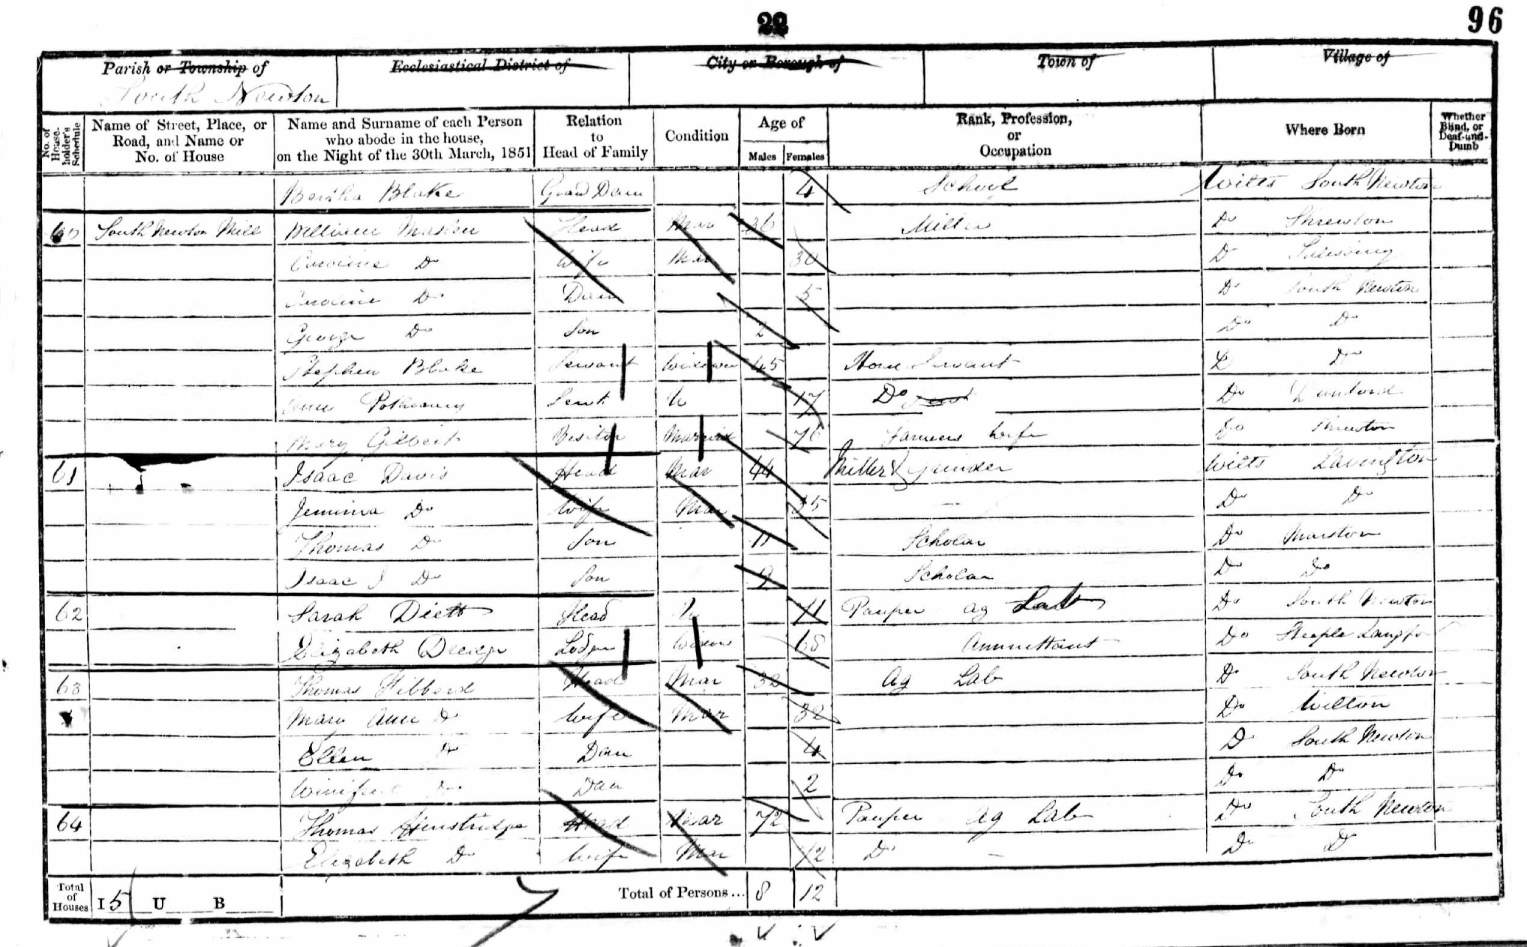 22
96
Parish or Township of
South Newton
Ecclesiastical District of
City or Borough of
Town of
Village of
No. of House-holder's Schedule
Name of Street, Place, or Road, and Name or No. of House
Name and Surname of each Person who abode in the house, on the Night of the 30th March, 1851
Relation to Head of Family
Condition
Age of
Males Females
Rank, Profession, or Occupation
Where Born
Whether Blind, or Deaf-and-Dumb
Bertha Blake Grand Daur 4 Wilts South Newton
South Newton Mill William Head Mar 36 Miller Do Shrewton
Caroline Do Wife Mar 30 Do
Do Daur 5 Do South Newton
George Do Son 2 Do Do
Stephen Blake Servant Widower 45 Servant Do
Ann Servt U 17 Do Do
Mary Gilbert Visitor Married 76 Farmers Wife Do Shrewton
61 Isaac Davis Head Mar 44 Miller & Grinder Wilts Lavington
Jemima Do Wife Mar Do Do
Thomas Do Son 11 Scholar Do Marston
Isaac J Do Son 9 Scholar Do Do
62 Sarah Head U 71 Pauper Ag Lab Do South Newton
Elizabeth Lodger 68 Annuitant Do Steeple
63 Thomas Hibberd Head Mar 32 Ag Lab Do South Newton
Mary Ann Do Wife Mar 32 Do Wilton
Ellen Do Daur 4 Do South Newton
Do Daur 2 Do Do
64 Thomas Head Mar 72 Pauper Ag Lab Do South Newton
Elizabeth Do Wife Mar 72 Do Do Do
Total of Houses 15 U B Total of Persons... 8 12